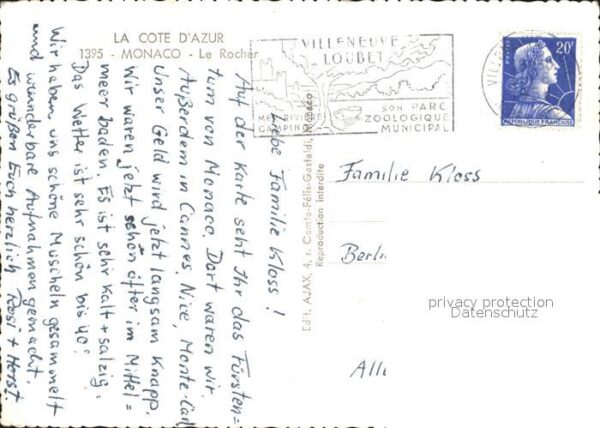 LA COTE D'AZUR
1395 - MONACO - Le Rocher
VILLENEUVE
LOUBET
SON PARC
ZOOLOGIQUE
MUNICIPAL
CAMPING
20F
POSTES
REPUBLIQUE FRANÇAISE
Liebe Familie Kloss!
Auf der Karte seht Ihr das Fürsten=
tum von Monaco. Dort waren wir.
Außerdem in Cannes, Nice, Monte-Carl
Unser Geld wird jetzt langsam knapp.
Wir waren jetzt schon öfter im Mittel=
meer baden. Es ist sehr kalt + salzig.
Das Wetter ist sehr schön bis 40°.
Wir haben uns schöne Muscheln gesammelt
und wunderbare Aufnahmen gemacht.
Es grüßen Euch herzlich Rosi + Horst.
Edit. AJAX, 4, r. Comte-Félix-Gastaldi, Monaco
Reproduction interdite
Familie Kloss
Berli
Alle
privacy protection
Datenschutz